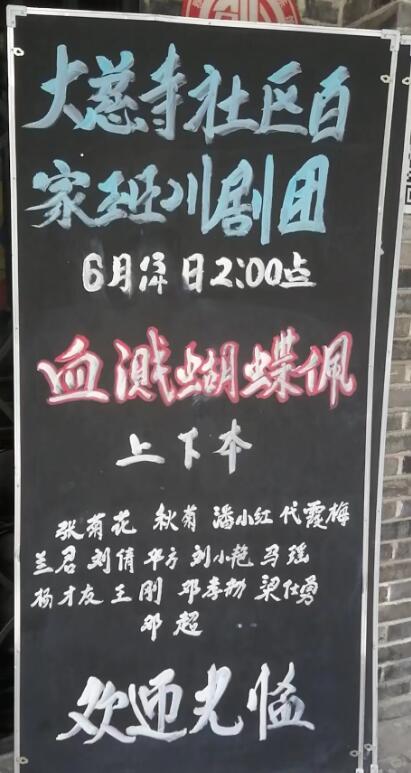 大慈寺社区百
家班川剧团
6月 日2:00点
血溅蝴蝶佩
上下本
张菊花 秋菊 潘小红 代霞梅
兰君 刘倩 华方 刘小艳 马瑶
杨才友 王刚 邓李劼 梁仕勇
邓超
欢迎光临